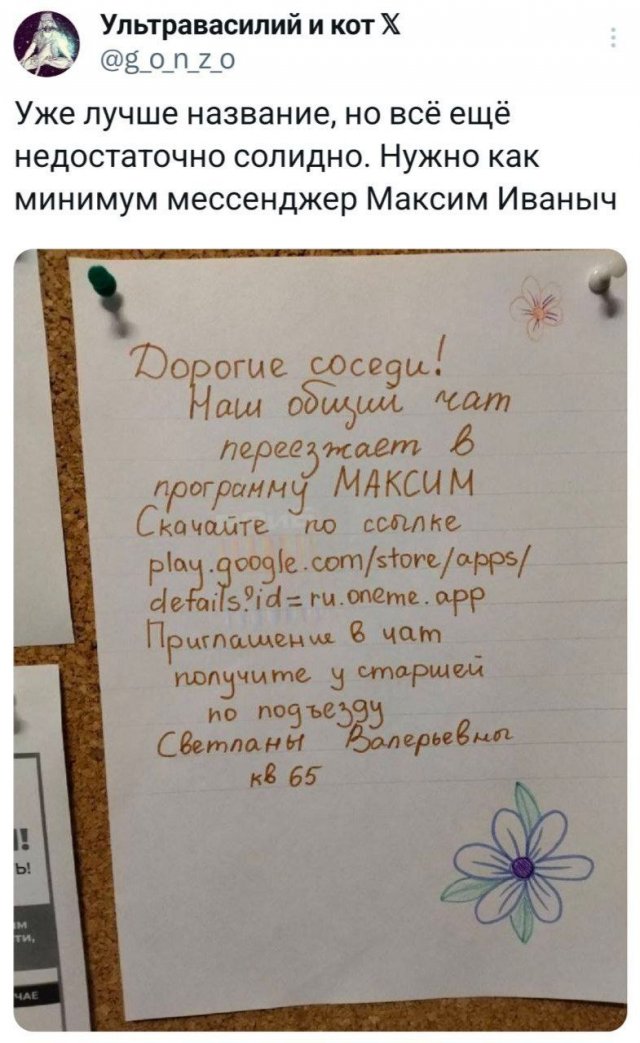 Ультравасилий и кот 𝕏
@g_o_n_z_o
Уже лучше название, но всё ещё
недостаточно солидно. Нужно как
минимум мессенджер Максим Иваныч
Дорогие соседи!
Наш общий чат
переезжает в
программу МАКСИМ
Скачайте по ссылке
play.google.com/store/apps/
details?id=ru.oneme.app
Приглашение в чат
получите у старшей
по подъезду
Светланы Валерьевны
кв 65
!
Ь!
М
ТИ,
ЧАЕ